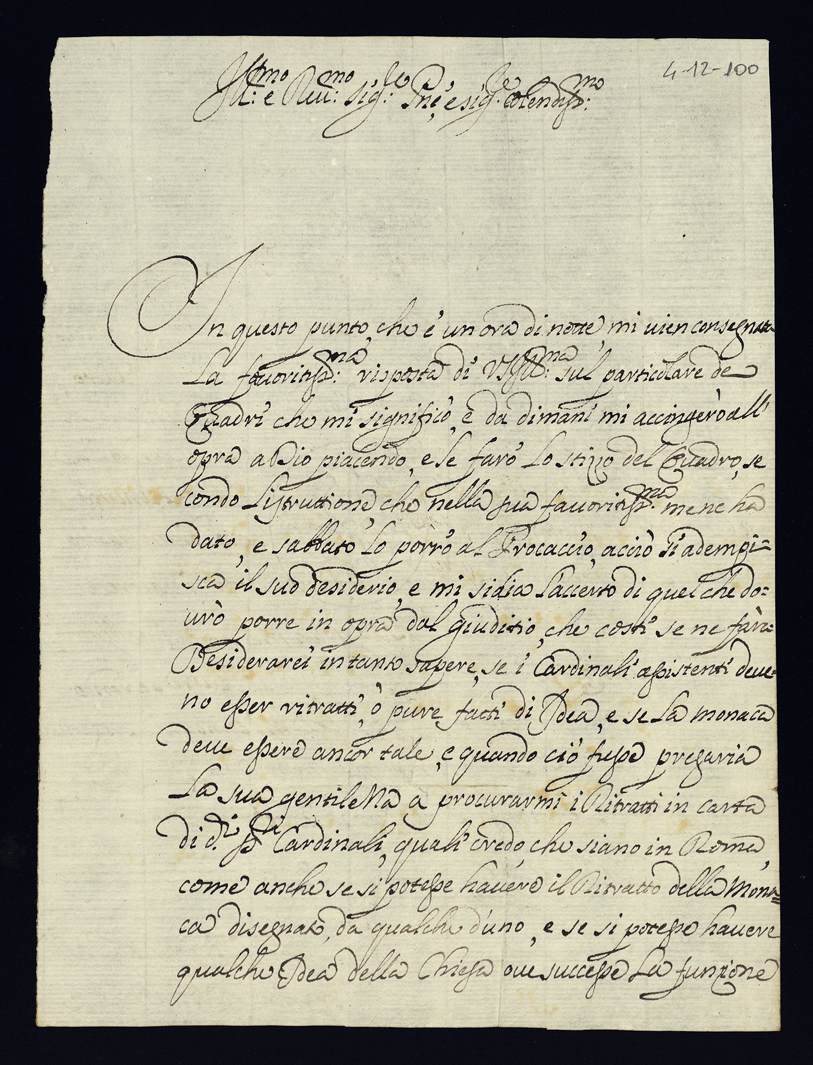 4-12-100
Ill:mo e Rev:mo Sig:re Pne, e sig:re Colendiss:mo
In questo punto, che è un ora di notte, mi uien consegnata
La fauoritiss:ma risposta di VS Ill:ma sul particolare de
Quadri che mi significò, e da dimani mi accingerò all'
opra a Dio piacendo, e se farò Lo stizzo del Quadro, se
condo L'istruttione, che nella sua fauoritiss:ma me ne ha
dato, e sabbato Lo porrò al Procaccio, acciò si adempi=
sca il suo desiderio, e mi si dia L'accerto di quel che do=
urò porre in opra dal giuditio, che costì se ne farà.
Desiderarei in tanto sapere, se i Cardinali assistenti deue=
no esser ritratti, ò pure fatti di Idea, e se La monaca
deue essere ancor tale, e quando ciò fusse pregaria
La sua gentilezza a procurarmi i Ritratti in carta
di d:i SS:ri Cardinali, quali credo che siano in Roma,
come anche se si potesse hauere il Ritratto della Mona=
ca disegnato da qualche d'uno, e se si potesse hauere
qualche Idea della Chiesa oue successe La funzione